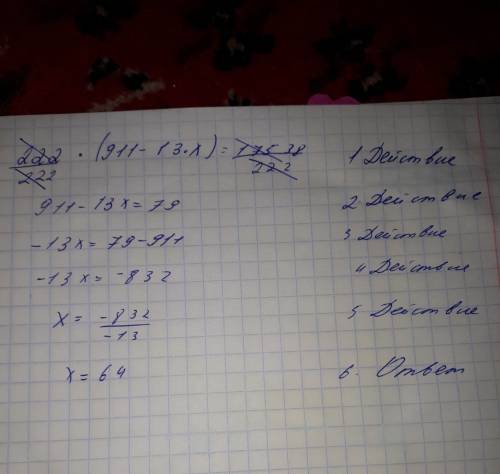 222/222 · (911 - 13·x) = 17538/222 1 Действие
911 - 13x = 79 2. Действие
-13x = 79 - 911 3 Действие
-13x = -832 4 Действие
x = -832/-13 5 Действие
x = 64 6. Ответ